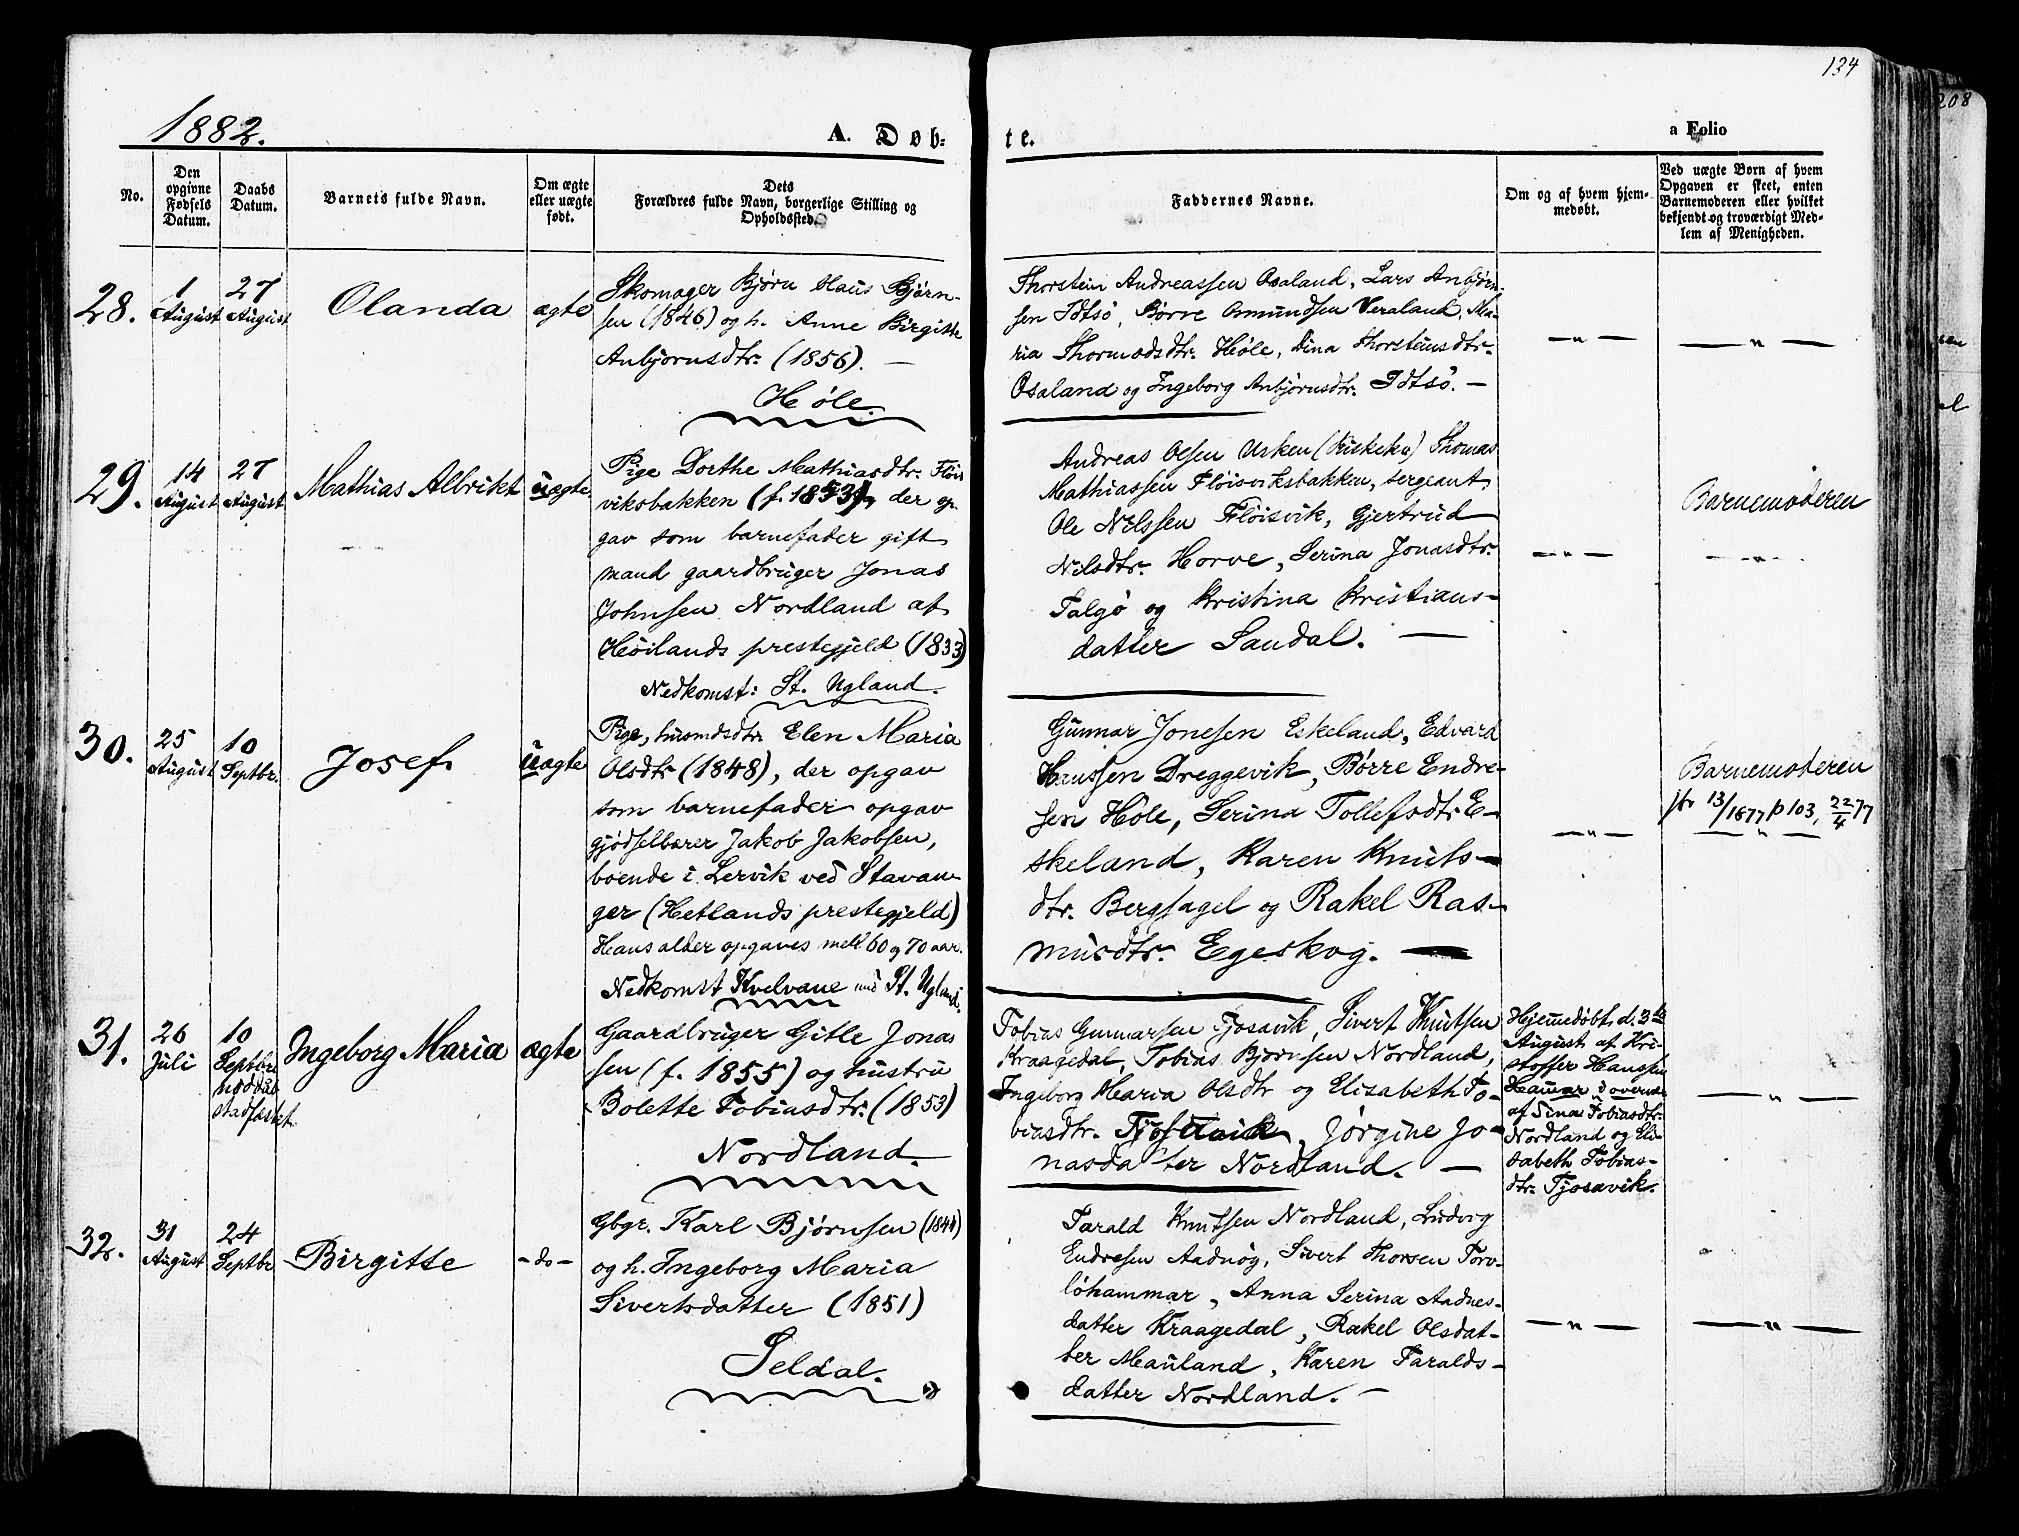 134
208
1882.
A. Døb-
te.
a Folio
No.
Den opgivne Fødsels Datum.
Daabs Datum.
Barnets fulde Navn.
Om ægte eller uægte født.
Dets Forældres fulde Navn, borgerlige Stilling og Opholdssted.
Faddernes Navne.
Om og af hvem hjemmedøbt.
Ved uægte Børn af hvem Opgaven er skeet, enten Barnemoderen eller hvilket bekjendt og troværdigt Medlem af Menigheden.
28.
1 August
27 August
Olanda
ægte
Skomager Bjørn Claus Bjørn-
sen (1846) og h. Anne Birgitte
Anbjørnsdtr. (1856). —
Høle.
Thorstein Andreassen Osaland, Lars Anbjørn-
sen Idtsø, Børve Osmundsen Veraland, Ma-
ria Thormodsdtr. Høle, Dina Thorsteinsdtr.
Osaland og Ingeborg Anbjørnsdtr. Idtsö. —
— " —
— " —
29.
14 August
27 August
Mathias Albrikt
uægte
Pige Dorthe Mathiasdtr. Fløis
viksbakken (f. 1853), der op-
gav som barnefader gift
mand gaardbruger Jonas
Johnsen Nordland af
Höilands prestegjeld (1833)
Nedkomst: St. Ugland.
Andreas Olsen Usken (Kuskeku) Thomas
Mathiassen Fløisviksbakken, sergeant
Ole Nilssen Fløisvik, Gjertrud
Nilsdtr. Horve, Serina Jonasdtr.
Talgö og Kristina Kristians-
datter Sandal. —
— " —
Barnemoderen
— " —
30.
25 August
10 Septbr.
Josef
uægte
Pige, husmdsdtr. Elen Maria
Olsdtr (1848), der opgav
som barnefader opgav
gjødselbærer Jakob Jakobsen,
boende i Lervik ved Stavan-
ger (Hetlands prestegjeld)
Hans alder opgaves mell 60 og 70 aar.
Nedkomst Kvelvane und St. Ugland.
Gunnar Jonesen Eskeland, Edvard
Hanssen Dreggevik, Børre Endre-
sen Höle, Serina Tollefsdtr. E-
skeland, Karen Knuts-
dtr. Bergsagel og Rakel Ras-
musdtr. Egeskog. —
— " —
Barnemoderen
jfr 13/1877 p 103, 22/4 77
— " —
31.
26 Juli
10 Septbr
nøddåb
stadfæstet
Ingeborg Maria
ægte
Gaardbruger Gitle Jonas
sen (f. 1855) og hustru
Bolette Tobiasdtr. (1853)
Nordland.
Tobias Gunnarsen Tjosavik, Sivert Knutsen
Kraagedal, Tobias Bjørnsen Nordland,
Ingeborg Maria Olsdtr og Elisabeth To-
biasdtr. Tjosavik, Jørgine Jo-
nasdatter Nordland. —
Hjemmedøbt d. 3te
August af Kri-
stoffer Hanssen
Hammer i overvær
af Sina Tobiasdtr.
Nordland og Eli-
sabeth Tobias-
dtr. Tjosavik.
— " —
32.
31 August
24 Septbr
Birgitte
- do -
Gbgr. Karl Bjørnsen (1844)
og h. Ingeborg Maria
Sivertsdatter (1851)
Seldal.
Tarald Knutsen Nordland, Ludvig
Endresen Aadnøg, Sivert Thorsen Torv-
löhammar, Anna Serina Aadnes-
datter Kraagedal, Rakel Olsdat-
ter Mauland, Karen Taralds-
datter Nordland. —
— " —
— " —